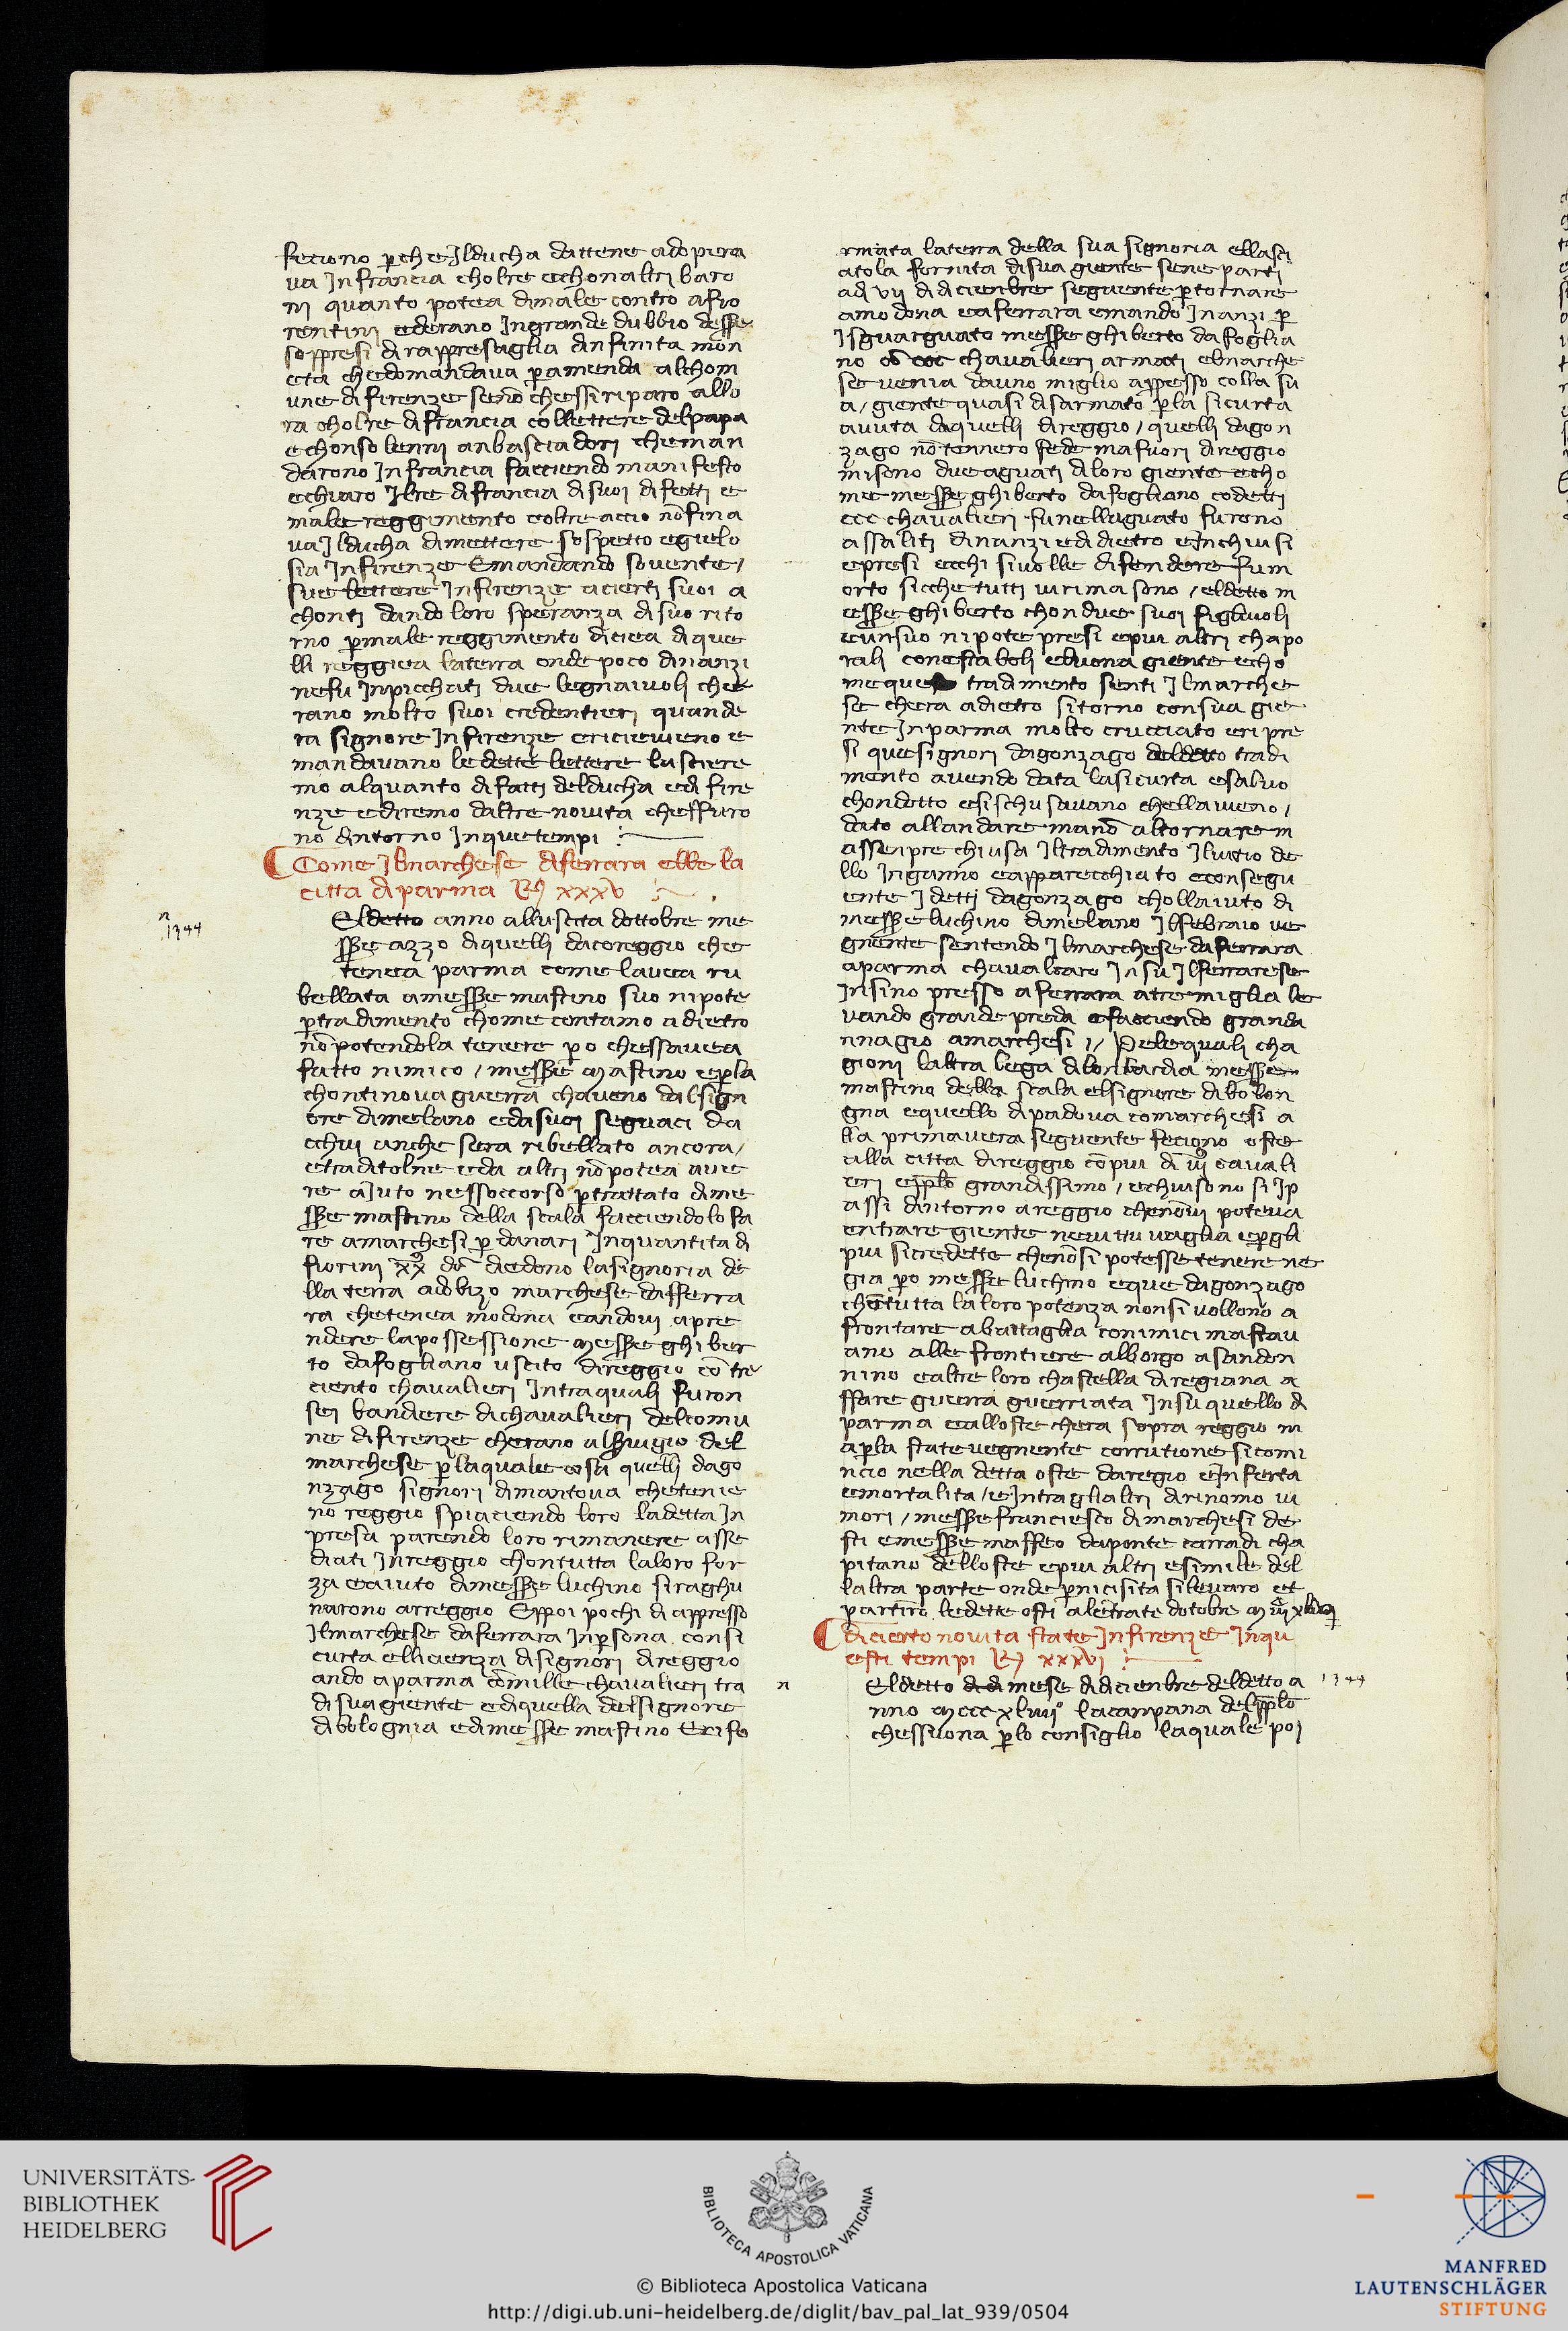 feciono p̱che Jlducha dattene adopera
ua Jnfrancia cholre echonaltri baro
nj quanto potea dimale contro afio
rentinj ederano Jngrande dubbio desse
soppresi dirappresaglia dinfinita mon
eta chedomandaua p̱amenda alchom
une difirenze senō chessiriparo allo
ra cholre difrancia collettere delpapa
echonsolennj anbasciadorj cheman
darono Jnfrancia facciendo manifesto
echiaro Jlre difrancia disuoi difetti e
male reggimento eoltreaccio nōfina
ua Jlducha dimettere sospetto egielo
sia Jnfirenze Emandando souente /
sue lettere Jnfirenze acierti suoi a
chontj dando loro speranza disuo rito
rno p̱male reggimento diciea dique
lli reggiea laterra onde poco dinanzi
nefu Jnpicchatj due legnaiuolj che
rano molto suoi credentierj quande
ra signore Jnfirenze ericieueno e
mandauano ledette lettere lasciere
mo alquanto difatti delducha edi fire
nze ediremo daltre nouita cheffuro
no dintorno Jnquetempi
Come Jlmarchese diferrara ebbe la
citta diparma R xxxv
n
1344
Eldetto anno alluscita dottobre me
sser azzo diquelli dacoreggio che
tenea parma come lauea ru
bellata amesser mastino suo nipote
p̱tradimento chome contamo adietro
nōpotendola tenere p̱o chessauea
fatto nimico / messer mastino ep̱la
chontinoua guerra chaueno dalsign
ore dimelano edasuoj seguaci da
cchui anche sera ribellato ancora /
etraditolne eda altrj nōpotea aue
re aJuto nessoccorso p̱trattato dime
sser mastino della scala facciendolo fa
re amarchesi p̱ danari Jnquantita di
fiorini xx do diedono lasignoria de
lla terra aobizo marchese dafferra
ra chetenea modona eandouj apre
ndere lapossessione messer ghiber
to dafogliano uscito direggio cō tre
ciento chavalieri Jntraqualj furon
sei bandiere dichavalieri delcomu
ne difirenze cherano alseruigio del
marchese p̱laquale cosa quelli dago
nzago signori dimantoua chetenie
no reggio spiaciendo loro ladetta Jn
presa parendo loro rimanere asse
diati Jnreggio chontutta laloro for
za eaiuto dimesser luchino siraghu
narono arreggio Eppoi pochi di appresso
Jlmarchese daferrara Jnp̱sona consi
curta ellicienza disignori direggio
ando aparma cōmille chavalieri tra
disuagiente ediquella delsignore
dibolognia edimesser mastino Erifo
rmata laterra della sua signoria ellasci
atola fornita disua giente sene parti
adj vij didicienbre seguente p̱tornare
amodona eaferrara emando Jnanzi p̱
Jsguarguato messer ghiberto dafoglia
no cō ccc chavalieri armati elmarche
se venia dauno miglio appesso colla su
a / giente quasi disarmato p̱la sicurta
auuta daquelli direggio / quelli dagon
zago nōtennero fede mafuori direggio
misono dueaguati diloro giente echo
me messer ghiberto dafogliano codetti
ccc chavalieri funellaguato furono
assaliti dinanzi edidietro eJnchiusi
epresi echi siuolle difendere fum
orto sicche tutti uirimasono / eldetto m
esser ghiberto chondue suoi figliuoli
eunsuo nipote presi epiu altri chapo
rali conestaboli ebuona giente echo
meque tradimento senti Jlmarche
se chera adietro sitorno consua gie
nte Jnparma molto crucciato eripre
si quesignori dagonzago deldetto tradi
mento auendo data lasicurta esaluo
chondotto esischusauano chellaueno /
dato allandare manō altornare m
assenpre chiusa Jltradimento Jluitio de
llo Jnganno eapparecchiato econsegu
ente Jdetti dagonzago chollaiuto di
messer luchino dimelano Jlfebraio ve
gnente sentendo Jlmarchese daferrara
aparma chavalcaro Jnsu Jlferrarese
Jnsino presso aferrara atremiglia le
uando grande preda efacciendo granda
nnagio amarchesi / Pelequali cha
gioni laltra lega dilonbardia messer
mastino della scala elsignore dibolon
gna equello dipadoua comarchesi a
lla primauera seguente feciono oste
alla citta direggio cōpiu di iij cauali
eri epplō grandissimo / echiusono si Jp
assi dintorno areggio chenōui poteua
entrare giente neuittuuaglia ep̱gli
piu sicredette chenōsi potesse tenere ne
gia p̱o messer luchino eque dagonzago
chōtutta laloro potenza nonsi uollono a
frontare abattaglia conimici mastau
ano alle frontiere alborgo asandon
nino ealtre loro chastella diregiana a
ffare guerra guerriata Jnsu quello di
parma ealloste chera sopra reggio m
ap̱la state uegnente corrutione sicomi
ncio nella detta oste daregio eJnferta
emortalita / eJntraglialtri dirinomo ui
mori / messer franciesco dimarchesi de
sti emesser maffeo daponte carradi cha
pitano delloste epiu altri esimile del
laltra parte onde p̱nicisita silevaro et
partiro ledette osti alētrate dotobre
Dicierto nouita state Jnfirenze Jnqu
esti tempi R xxxvj
n
1344
Eldetto mese didicienbre deldetto a
nno mccc xliiij lacanpana delpplō
chessuona p̱lo consiglio laquale poi
UNIVERSITÄTS-
BIBLIOTHEK
HEIDELBERG
BIBLIOTECA APOSTOLICA VATICANA
© Biblioteca Apostolica Vaticana
http://digi.ub.uni-heidelberg.de/diglit/bav_pal_lat_939/0504
MANFRED
LAUTENSCHLÄGER
STIFTUNG